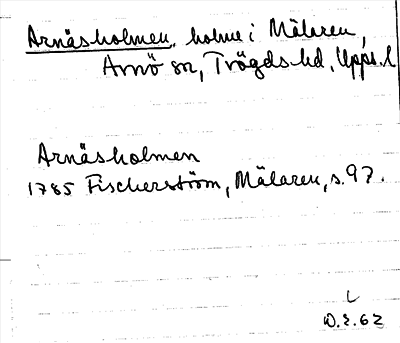 Arnäsholmen, holme i Mälaren,
Arnö sn, Trögds hd, Upps. l
Arnäsholmen
1785 Fischerström, Mälaren, s. 97.
W.E. 62